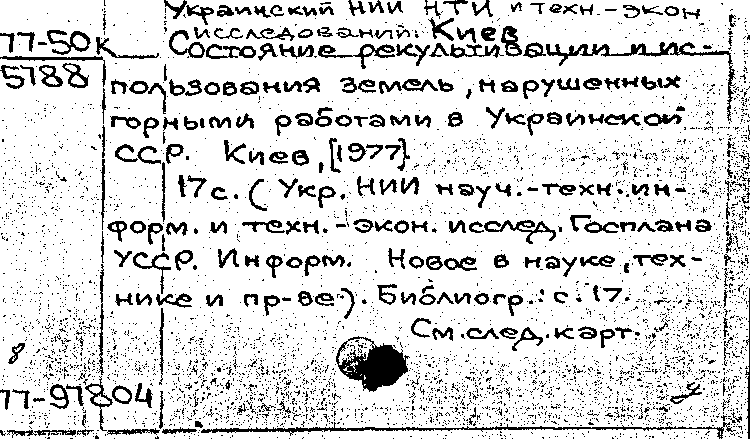 Украинский НИИ НТИ и техн.-экон
исследований. Киев
77-50к Состояние рекультивации и ис-
5788 пользования земель, нарушенных
горными работами в Украинской
ССР. Киев, [1977].
17 с. (Укр. НИИ науч.-техн. ин-
форм. и техн.-экон. исслед. Госплана
УССР. Информ. Новое в науке, тех-
нике и пр-ве.). Библиогр.: с. 17.
См. след. карт.
8
77-97804